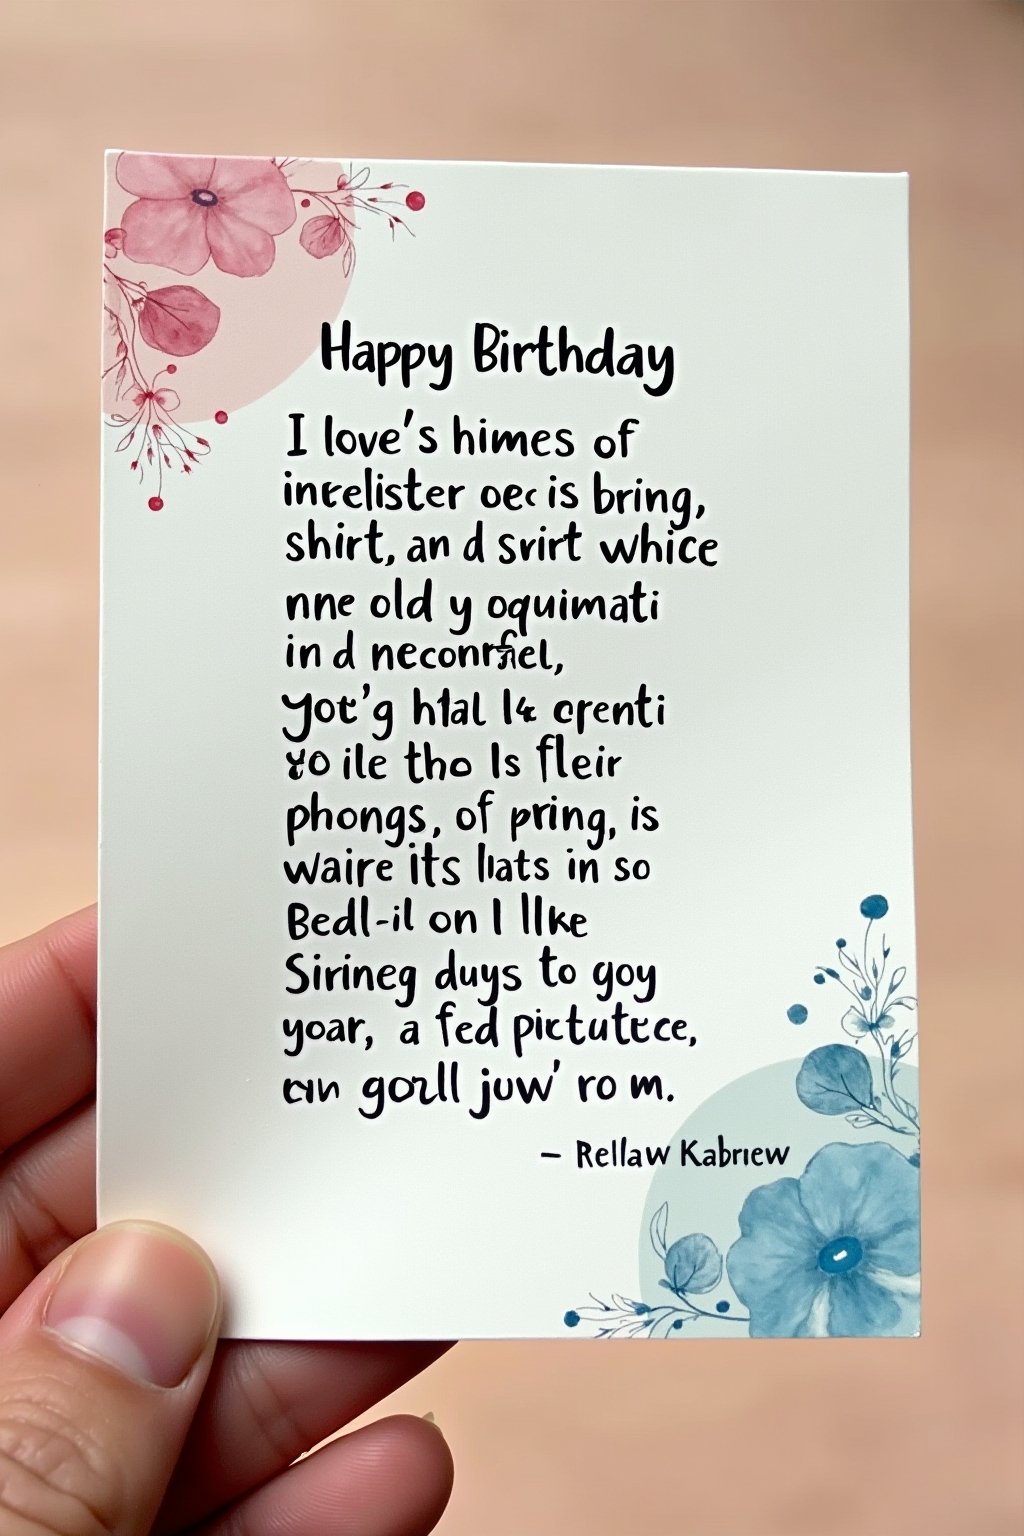 Happy Birthday
I love's himes of
intelister oec is bring,
shirt, an d svirt whice
nne old y oquimati
in d
yot'g htal
yo ile tho Is fleir
phongs, of pring, is
waire its liats in so
Bedl-il on I lIke
Sirineg duys to goy
yoar, a fed
juw' ro m.
– Rellaw Kabriew